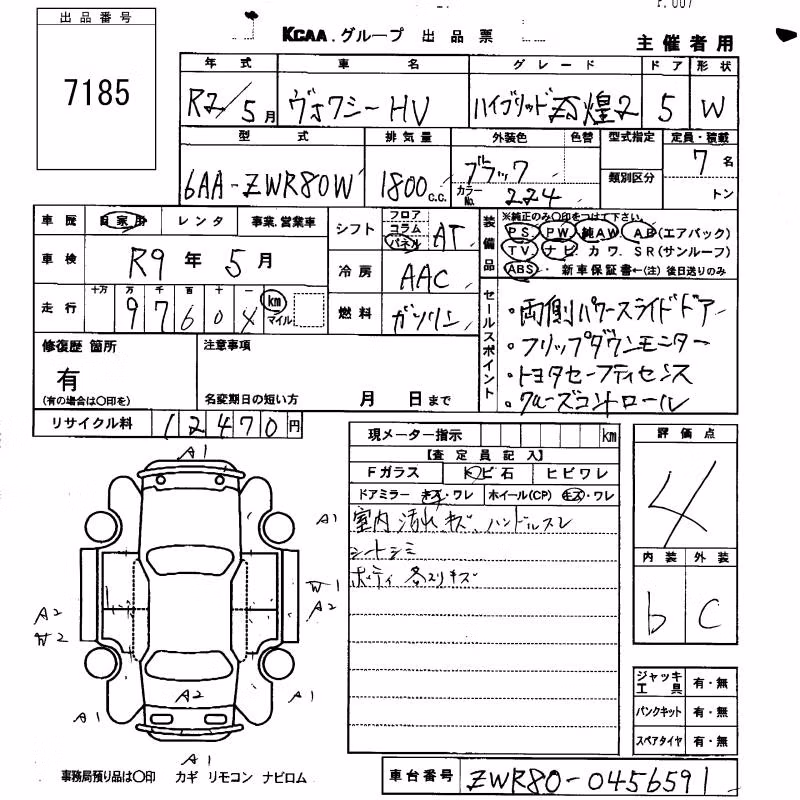 P.007
出品番号
7185
KCAA.グループ 出品票
主催者用
年式 車名 グレード ドア 形状
R2/5月 ヴォクシーHV ハイブリッドZS煌2 5 W
型式 排気量 外装色 色替 型式指定 定員・積載
6AA-ZWR80W 1800c.c. ブラック 7名
カラーNo. 224 類別区分 トン
車歴 自家用 レンタ 事業.営業車
車検 R9年5月
走行 十万 万 千 百 十 一 km マイル
97604
シフト フロア コラム パネル AT
冷房 AAC
燃料 ガソリン
装備品
※純正のみ〇印をつけて下さい。
PS. PW 純AW. AB(エアバック)
TV ナビ. カワ. SR(サンルーフ)
ABS. 新車保証書←(注)後日送りのみ
セールスポイント
・両側パワースライドドアー
・フリップダウンモニター
・トヨタセーフティセンス
・クルーズコントロール
修復歴 箇所
有
(有の場合は〇印を)
注意事項
名変期日の短い方 月 日まで
リサイクル料 12470円
現メーター指示 km
【査定員記入】
Fガラス トビ石 ヒビワレ
ドアミラー キズ・ワレ ホイール(CP) キズ・ワレ
室内 汚れ キズ ハンドルスレ
シートシミ
ボディ 各スリキズ
評価点
4
内装 外装
b C
ジャッキ工具 有・無
パンクキット 有・無
スペアタイヤ 有・無
A1
A1
W1
A2
A2
W2
A2
A1
A1
A1
事務局預り品は〇印 カギ リモコン ナビロム
車台番号 ZWR80-0456591